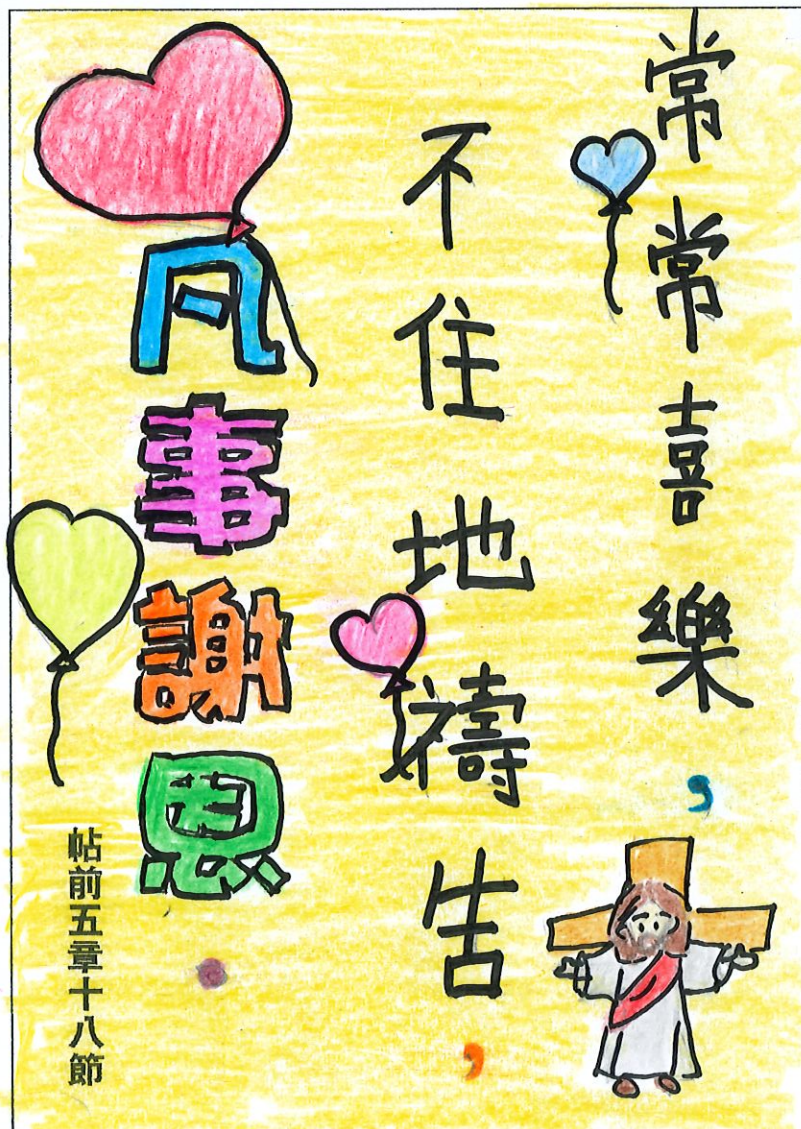 常常喜樂，
不住地禱告，
凡事謝恩。
帖前五章十八節